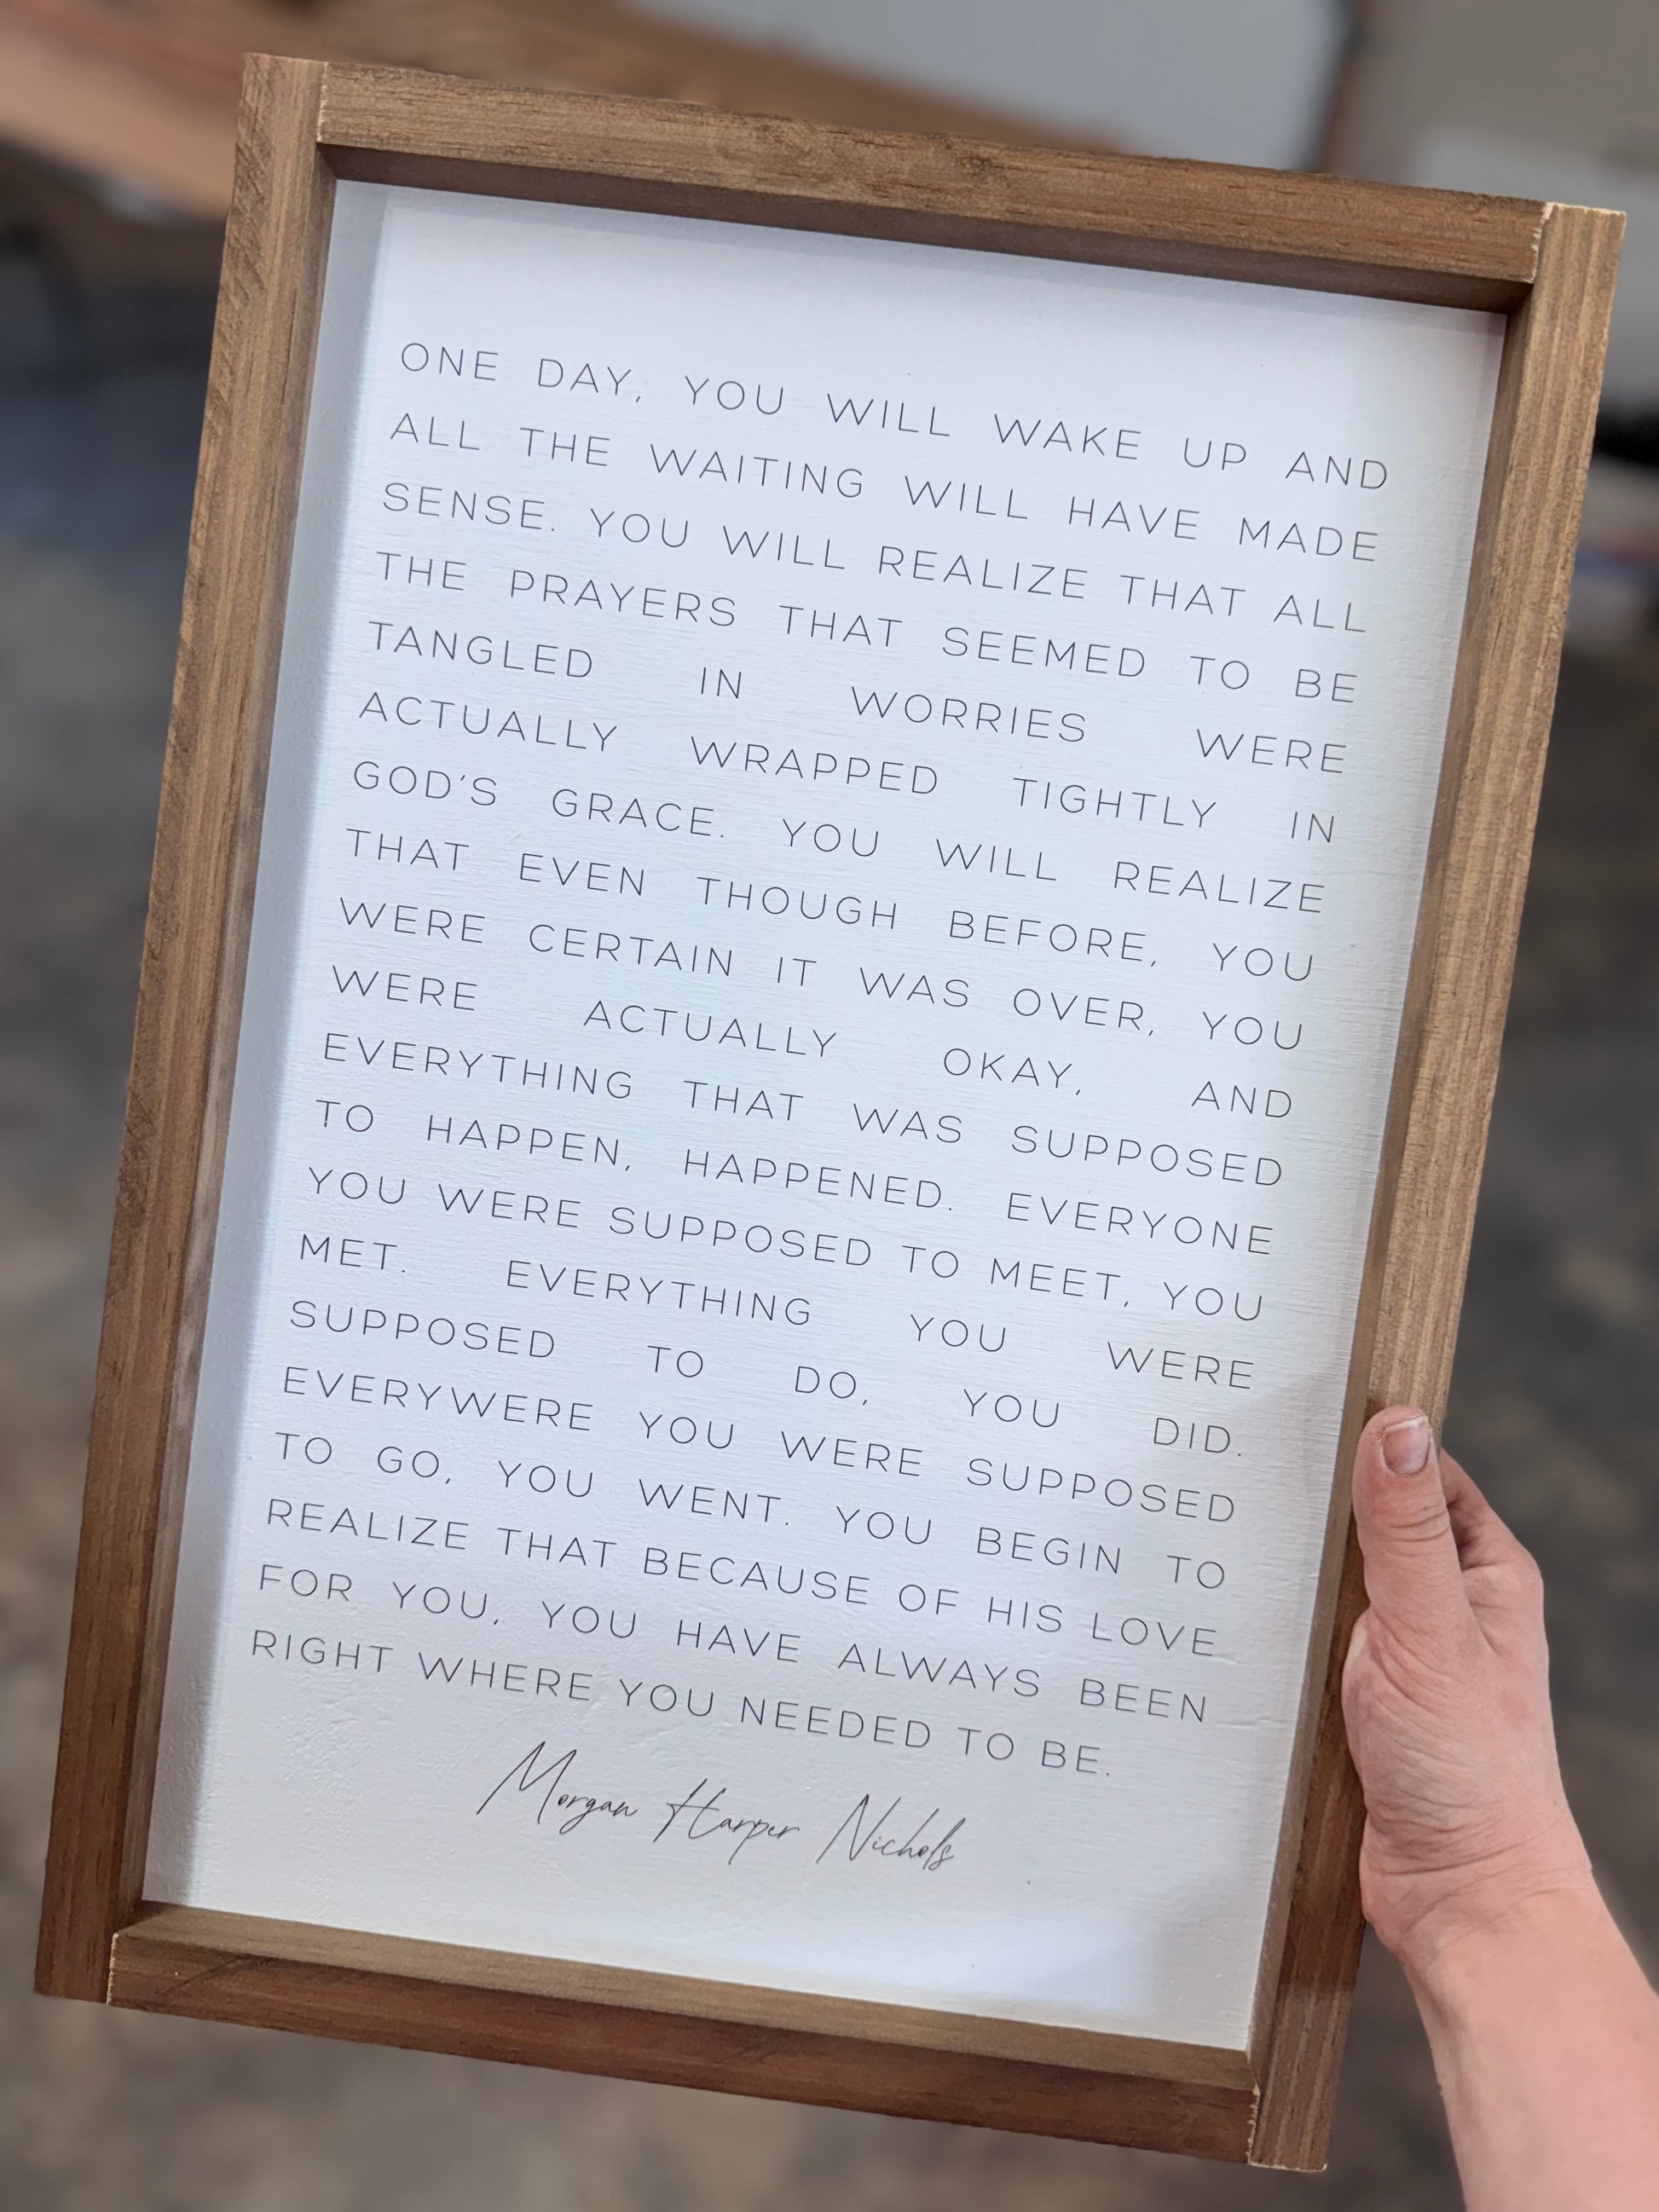 ONE DAY, YOU WILL WAKE UP AND
ALL THE WAITING WILL HAVE MADE
SENSE. YOU WILL REALIZE THAT ALL
THE PRAYERS THAT SEEMED TO BE
TANGLED IN WORRIES WERE
ACTUALLY WRAPPED TIGHTLY IN
GOD'S GRACE. YOU WILL REALIZE
THAT EVEN THOUGH BEFORE, YOU
WERE CERTAIN IT WAS OVER, YOU
WERE ACTUALLY OKAY, AND
EVERYTHING THAT WAS SUPPOSED
TO HAPPEN, HAPPENED. EVERYONE
YOU WERE SUPPOSED TO MEET, YOU
MET. EVERYTHING YOU WERE
SUPPOSED TO DO, YOU DID.
EVERYWERE YOU WERE SUPPOSED
TO GO, YOU WENT. YOU BEGIN TO
REALIZE THAT BECAUSE OF HIS LOVE
FOR YOU, YOU HAVE ALWAYS BEEN
RIGHT WHERE YOU NEEDED TO BE.
Morgan Harper Nichols